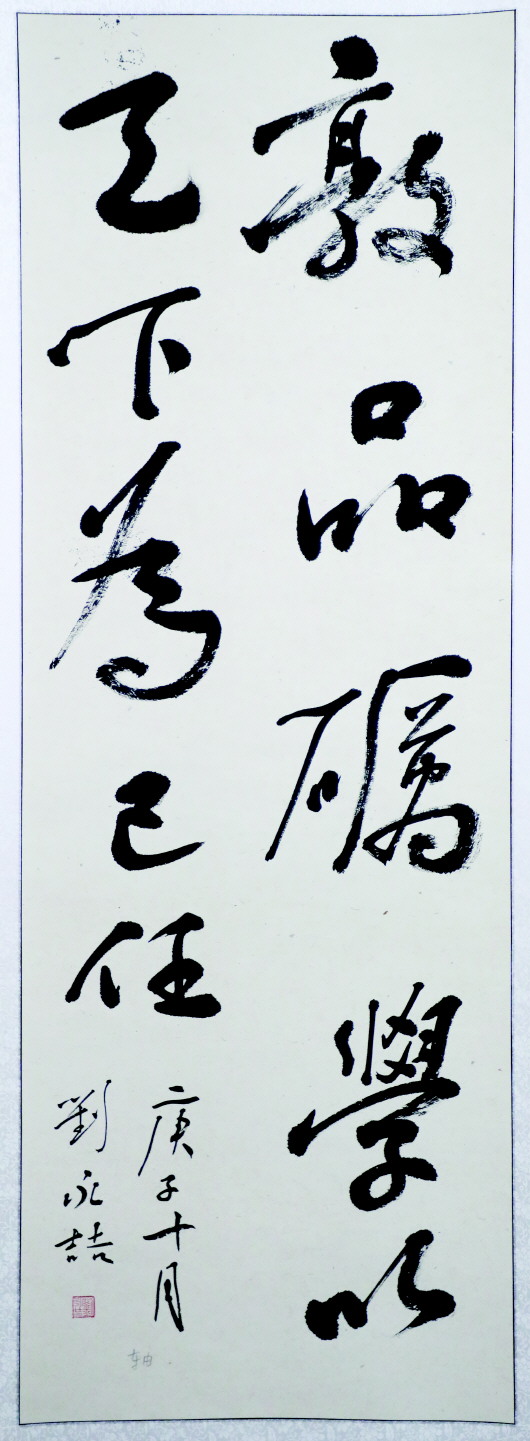 敦品礪學以
天下為己任
庚子十月
劉永喆
軸